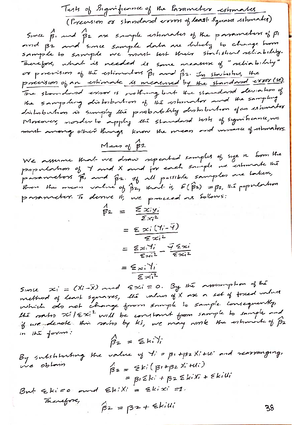 Tests of Significance of the Parameter estimates
(Precision or standard errors of least square estimates)
Since β̂1 and β̂2 are sample estimates of the parameters of β1
and β2 and since sample data are likely to change from
sample to sample we must test their statistical reliability.
Therefore what is needed is some measure of "reliability"
or precision of the estimators β̂1 and β̂2. In statistics the
precision of an estimate is measured by the standard error (se)
The standard error is nothing but the standard deviation of
the sampling distribution of the estimator and the sampling
distribution is simply the probability distribution of an estimator
Moreover, order to apply the standard tests of significance, we
must among other things know the mean and variance of estimators
Mean of β̂2
We assume that we draw repeated samples of size n from the
population of Y and X and for each sample we estimate the
parameters β̂1 and β̂2. If all possible samples are taken,
then the mean value of β̂2, that is E(β̂2) = β2, the population
parameter. To derive it, we proceed as follows:
β̂2 = Σxiyi / Σxi²
= Σxi(Yi-Ȳ) / Σxi²
= ΣxiYi / Σxi² - ȲΣxi / Σxi²
= ΣxiYi / Σxi²
Since xi = (Xi-X̄) and Σxi = 0. By the assumption of the
method of least squares, the values of X are a set of fixed values
which do not change from sample to sample. Consequently,
the ratio xi/Σxi² will be constant from sample to sample and
if we denote this ratio by ki, we may write the estimate of β̂2
in the form:
β̂2 = ΣkiYi
By substituting the value of Yi = β1+β2Xi+Ui and rearranging,
we obtain
β̂2 = Σki(β1+β2Xi+Ui)
= β1Σki + β2ΣkiXi + ΣkiUi
But Σki = 0 and ΣkiXi = Σkixi = 1.
Therefore,
β̂2 = β2 + ΣkiUi
38